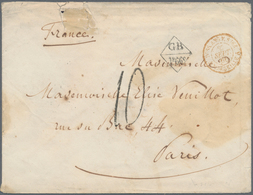 France.
GB
Mademoiselle
10
Mademoiselle Elise Veuillot
rue du Bac 44
Paris.